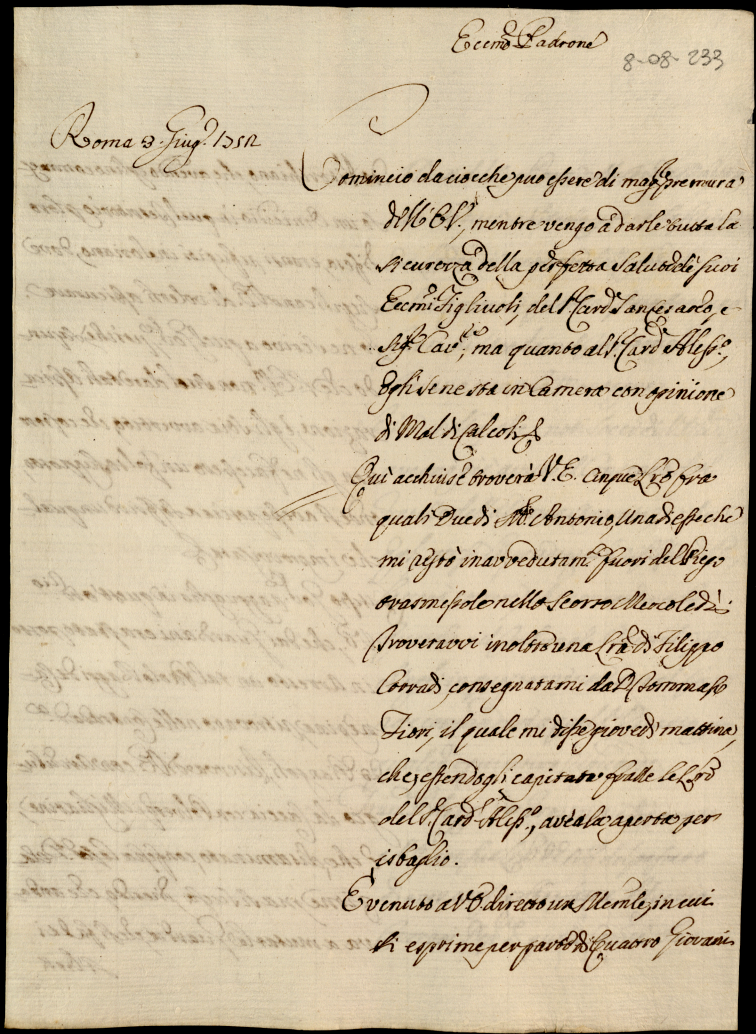 Eccmo Padrone
8-08-233
Roma 3. Giugo. 1752
Comincio da ciocche può essere di maggr premura
di V. E., mentre vengo à darle tutta la
sicurezza della perfetta salute de suoi
Eccmi Figliuoli, del Sr. Card. Sancesareo, e
Sigr Cavre, ma quanto al Sr. Card. Alesso,
Egli se ne sta in Camera con opinione
di Mal di Calcoli.
Quì acchiuse troverà V. E. cinque Lre frà
quali Due di Antonio, Una di esse che
mi restò inavvedutamte fuori del Piego
trasmessole nello scorso Mercoledì:
Troveravvi inoltre una Lra di Filippo
Corradi, consegnatami da D. Tommaso
Fiori, il quale mi disse giovedì mattina,
che, essendogli capitata fralle le Lre
del Sr. Card. Alesso, aveala aperta per
isbaglio.
È venuto a V. E. diretto un Memle, in cui
si esprime per parte di Quattro Giovani